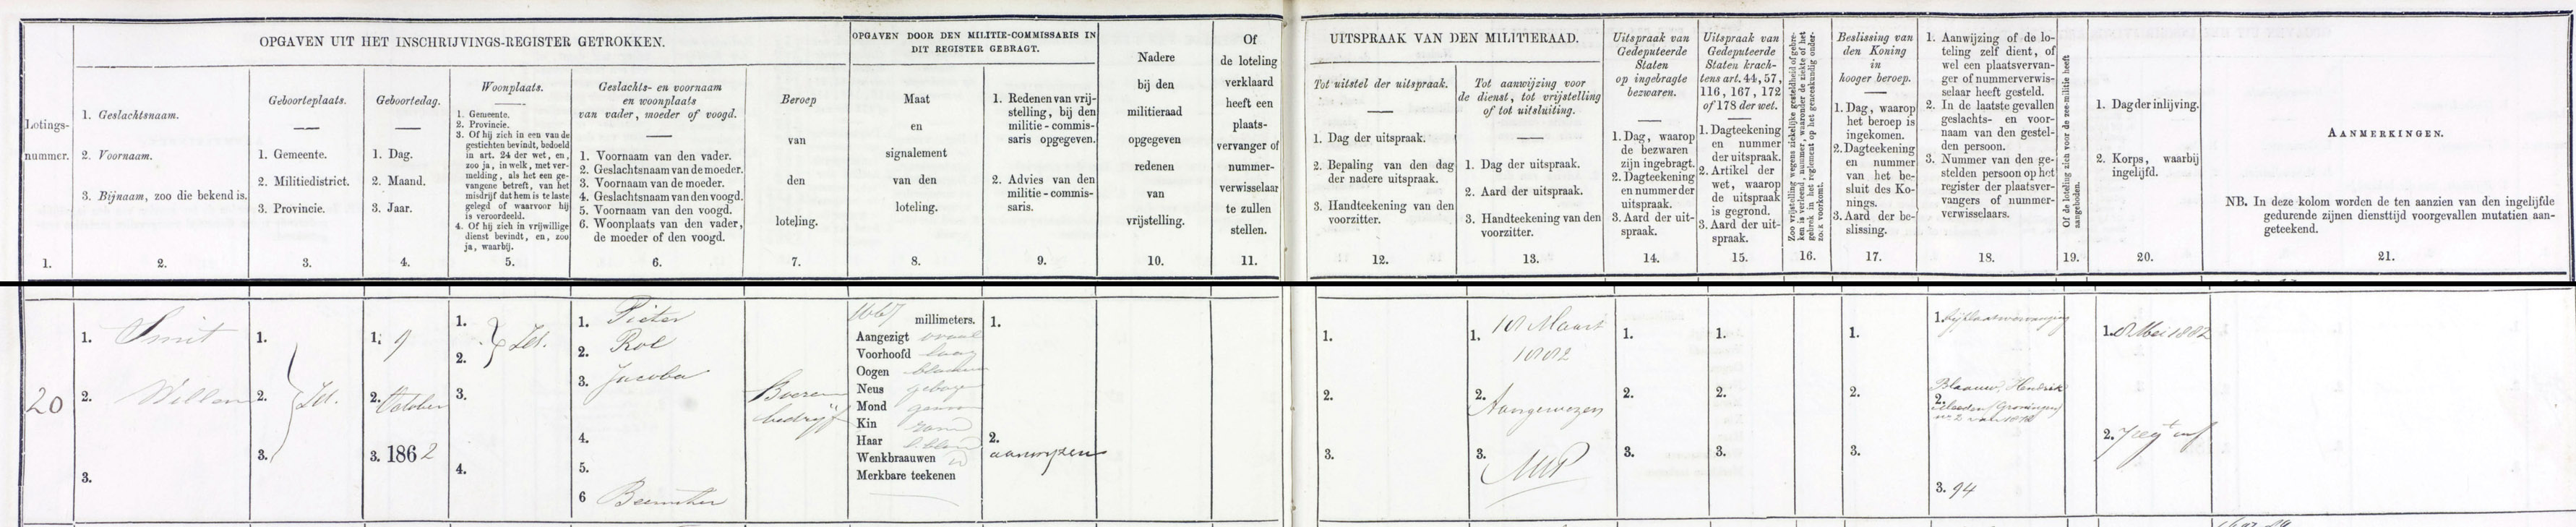 OPGAVEN UIT HET INSCHRIJVINGS-REGISTER GETROKKEN.
OPGAVEN DOOR DEN MILITIE-COMMISSARIS IN
DIT REGISTER GEBRAGT.
Lotings-
nummer.
1.
1. Geslachtsnaam.
2. Voornaam.
3. Bijnaam, zoo die bekend is.
2.
Geboorteplaats.
1. Gemeente.
2. Militiedistrict.
3. Provincie.
3.
Geboortedag.
1. Dag.
2. Maand.
3. Jaar.
4.
Woonplaats.
1. Gemeente.
2. Provincie.
3. Of hij zich in een van de
gestichten bevindt, bedoeld
in art. 24 der wet, en,
zoo ja, in welk, met ver-
melding, als het een ge-
vangene betreft, van het
misdrijf dat hem is te laste
gelegd of waarvoor hij
is veroordeeld.
4. Of hij zich in vrijwillige
dienst bevindt, en, zoo
ja, waarbij.
5.
Geslachts- en voornaam
en woonplaats
van vader, moeder of voogd.
1. Voornaam van den vader.
2. Geslachtsnaam van de moeder.
3. Voornaam van de moeder.
4. Geslachtsnaam van den voogd.
5. Voornaam van den voogd.
6. Woonplaats van den vader,
de moeder of den voogd.
6.
Beroep
van
den
loteling.
7.
Maat
en
signalement
van den
loteling.
8.
1. Redenen van vrij-
stelling, bij den
militie-commis-
saris opgegeven.
2. Advies van den
militie-commis-
saris.
9.
Nadere
bij den
militieraad
opgegeven
redenen
van
vrijstelling.
10.
Of
de loteling
verklaard
heeft een
plaats-
vervanger of
nummer-
verwisselaar
te zullen
stellen.
11.
UITSPRAAK VAN DEN MILITIERAAD.
Tot uitstel der uitspraak.
1. Dag der uitspraak.
2. Bepaling van den dag
der nadere uitspraak.
3. Handteekening van den
voorzitter.
12.
Tot aanwijzing voor
de dienst, tot vrijstelling
of tot uitsluiting.
1. Dag der uitspraak.
2. Aard der uitspraak.
3. Handteekening van den
voorzitter.
13.
Uitspraak van
Gedeputeerde
Staten
op ingebragte
bezwaren.
1. Dag, waarop
de bezwaren
zijn ingebragt.
2. Dagteekening
en nummer der
uitspraak.
3. Aard der uit-
spraak.
14.
Uitspraak van
Gedeputeerde
Staten krach-
tens art. 44, 57,
116, 167, 172
of 178 der wet.
1. Dagteekening
en nummer
der uitspraak.
2. Artikel der
wet, waarop
de uitspraak
is gegrond.
3. Aard der uit-
spraak.
15.
Zoo vrijstelling wegens ziekelijke gesteldheid of gebre-
ken is verleend, nummer, waaronder de ziekte of het
gebrek in het reglement op het geneeskundig onder-
zoek voorkomt.
16.
Beslissing van
den Koning
in
hooger beroep.
1. Dag, waarop
het beroep is
ingekomen.
2. Dagteekening
en nummer
van het be-
sluit des Ko-
nings.
3. Aard der be-
slissing.
17.
1. Aanwijzing of de lo-
teling zelf dient, of
wel een plaatsvervan-
ger of nummerverwis-
selaar heeft gesteld.
2. In de laatste gevallen
geslachts- en voor-
naam van den gestel-
den persoon.
3. Nummer van den ge-
stelden persoon op het
register der plaatsver-
vangers of nummer-
verwisselaars.
18.
Of de loteling zich voor de zee-militie heeft
aangeboden.
19.
1. Dag der inlijving.
2. Korps, waarbij
ingelijfd.
20.
AANMERKINGEN.
NB. In deze kolom worden de ten aanzien van den ingelijfde
gedurende zijnen diensttijd voorgevallen mutatien aan-
geteekend.
21.
20
1. Smit
2. Willem
3.
1.
2. Id.
3.
1. 9
2. October
3. 1862
1.
2. Id.
3.
4.
1. Pieter
2. Rol
3. Jacoba
4.
5.
6 Beemster
Boeren
bedrijf
1667 millimeters.
Aangezigt ovaal
Voorhoofd laag
Oogen blauw
Neus gebogen
Mond gewoon
Kin rond
Haar l. blond
Wenkbraauwen id
Merkbare teekenen
1.
2.
aanwijzen
1.
2.
3.
1. 18 Maart
1882
2. Aangewezen
3.
1.
2.
3.
1.
2.
3.
1.
2.
3.
1. bij plaatsvervanging
Blaauw, Hendrik
2.
3. 94
1. 8 Mei 1882
2. 7 regt inf